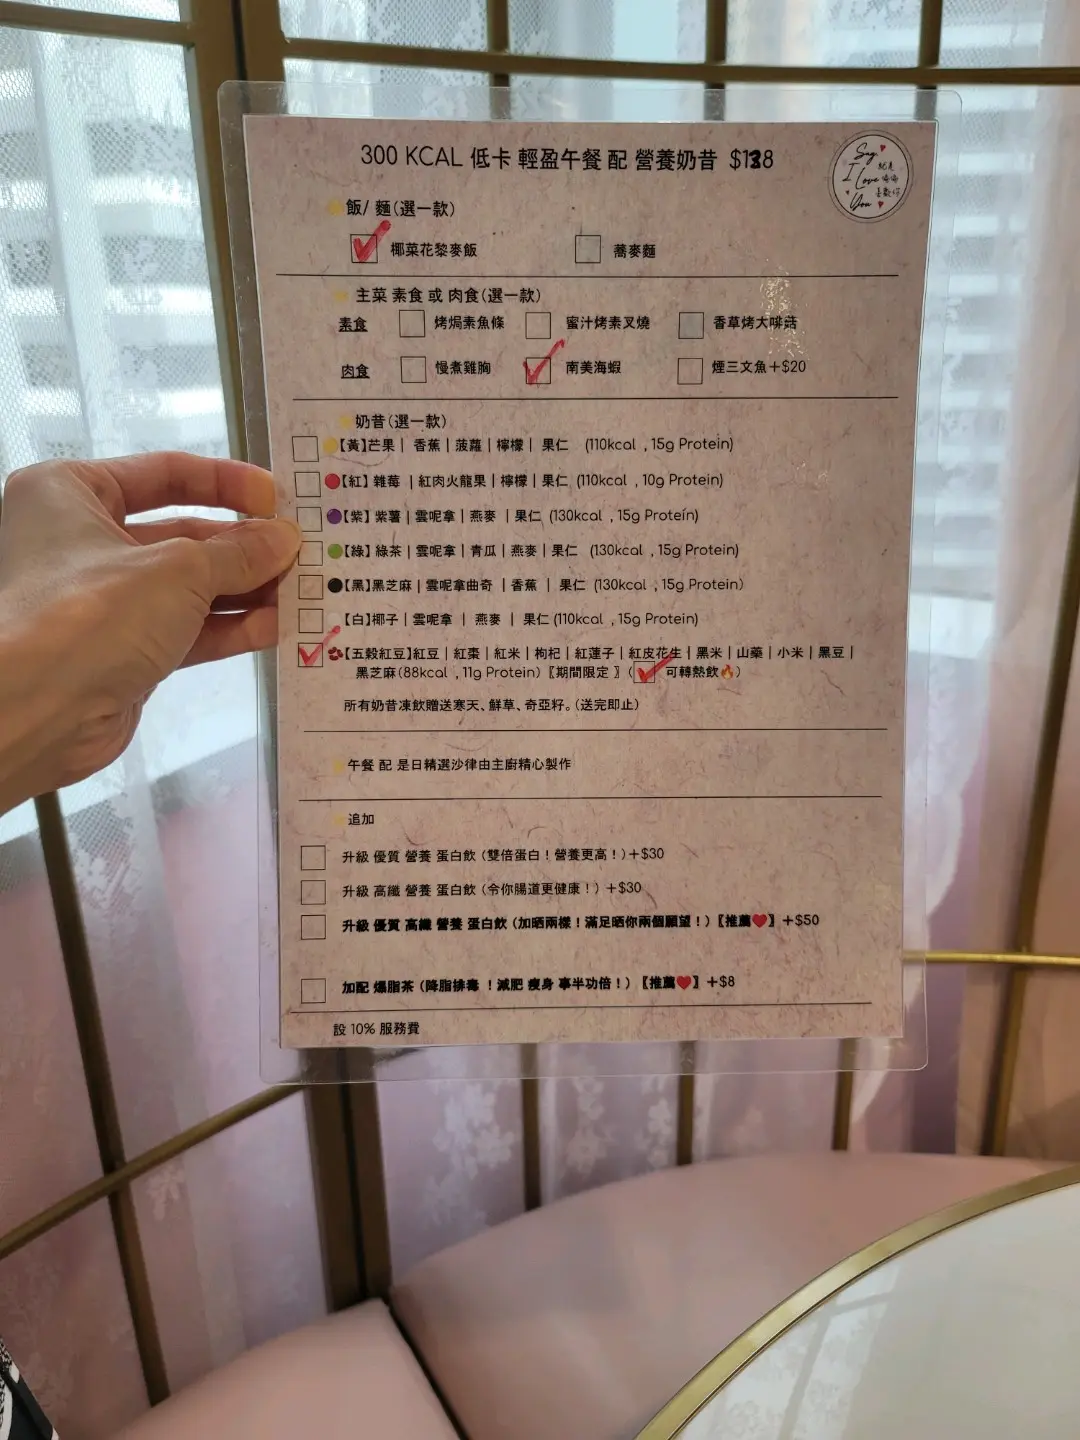 300 KCAL 低卡 輕盈午餐 配 營養奶昔 $138
Say
I Love
You
飯/ 麵(選一款)
椰菜花黎麥飯 蕎麥麵
主菜 素食 或 肉食(選一款)
素食 烤焗素魚條 蜜汁烤素叉燒 香草烤大啡菇
肉食 慢煮雞胸 南美海蝦 煙三文魚+$20
奶昔(選一款)
【黃】芒果 | 香蕉 | 菠蘿 | 檸檬 | 果仁 (110kcal , 15g Protein)
【紅】雜莓 | 紅肉火龍果 | 檸檬 | 果仁 (110kcal , 10g Protein)
【紫】紫薯 | 雲呢拿 | 燕麥 | 果仁 (130kcal , 15g Protein)
【綠】綠茶 | 雲呢拿 | 青瓜 | 燕麥 | 果仁 (130kcal , 15g Protein)
【黑】黑芝麻 | 雲呢拿曲奇 | 香蕉 | 果仁 (130kcal , 15g Protein)
【白】椰子 | 雲呢拿 | 燕麥 | 果仁 (110kcal , 15g Protein)
【五穀紅豆】紅豆 | 紅棗 | 紅米 | 枸杞 | 紅蓮子 | 紅皮花生 | 黑米 | 山藥 | 小米 | 黑豆 |
黑芝麻(88kcal , 11g Protein)〖期間限定 〗( 可轉熱飲🔥)
所有奶昔凍飲贈送寒天、鮮草、奇亞籽。(送完即止)
午餐 配 是日精選沙律由主廚精心製作
追加
升級 優質 營養 蛋白飲 (雙倍蛋白！營養更高！)+$30
升級 高纖 營養 蛋白飲 (令你腸道更健康！)+$30
升級 優質 高纖 營養 蛋白飲 (加晒兩樣！滿足晒你兩個願望！)〖推薦❤️〗+$50
加配 爆脂茶 (降脂排毒 ！減肥 瘦身 事半功倍！)〖推薦❤️〗+$8
設 10% 服務費